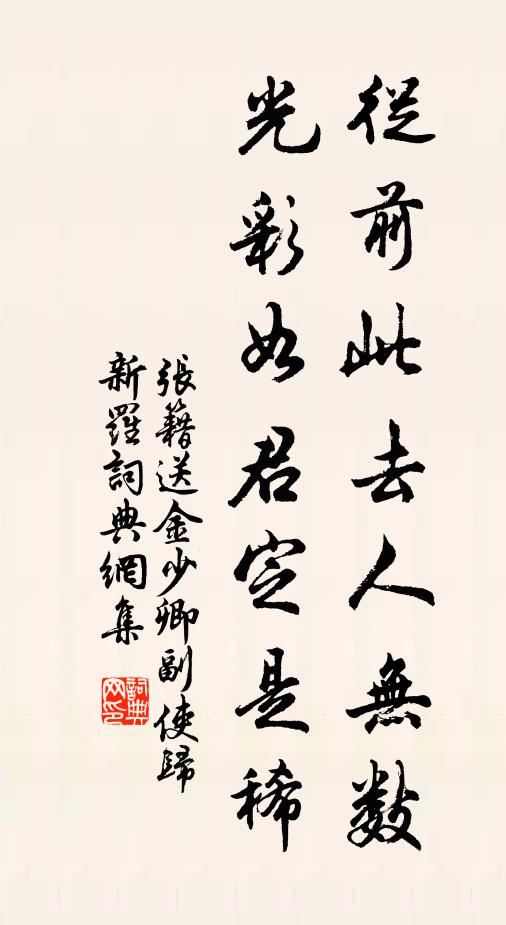 從前此去人無數
光彩如君定是稀
張籍送金少卿副使歸
新羅詞典網集
詞典
网印